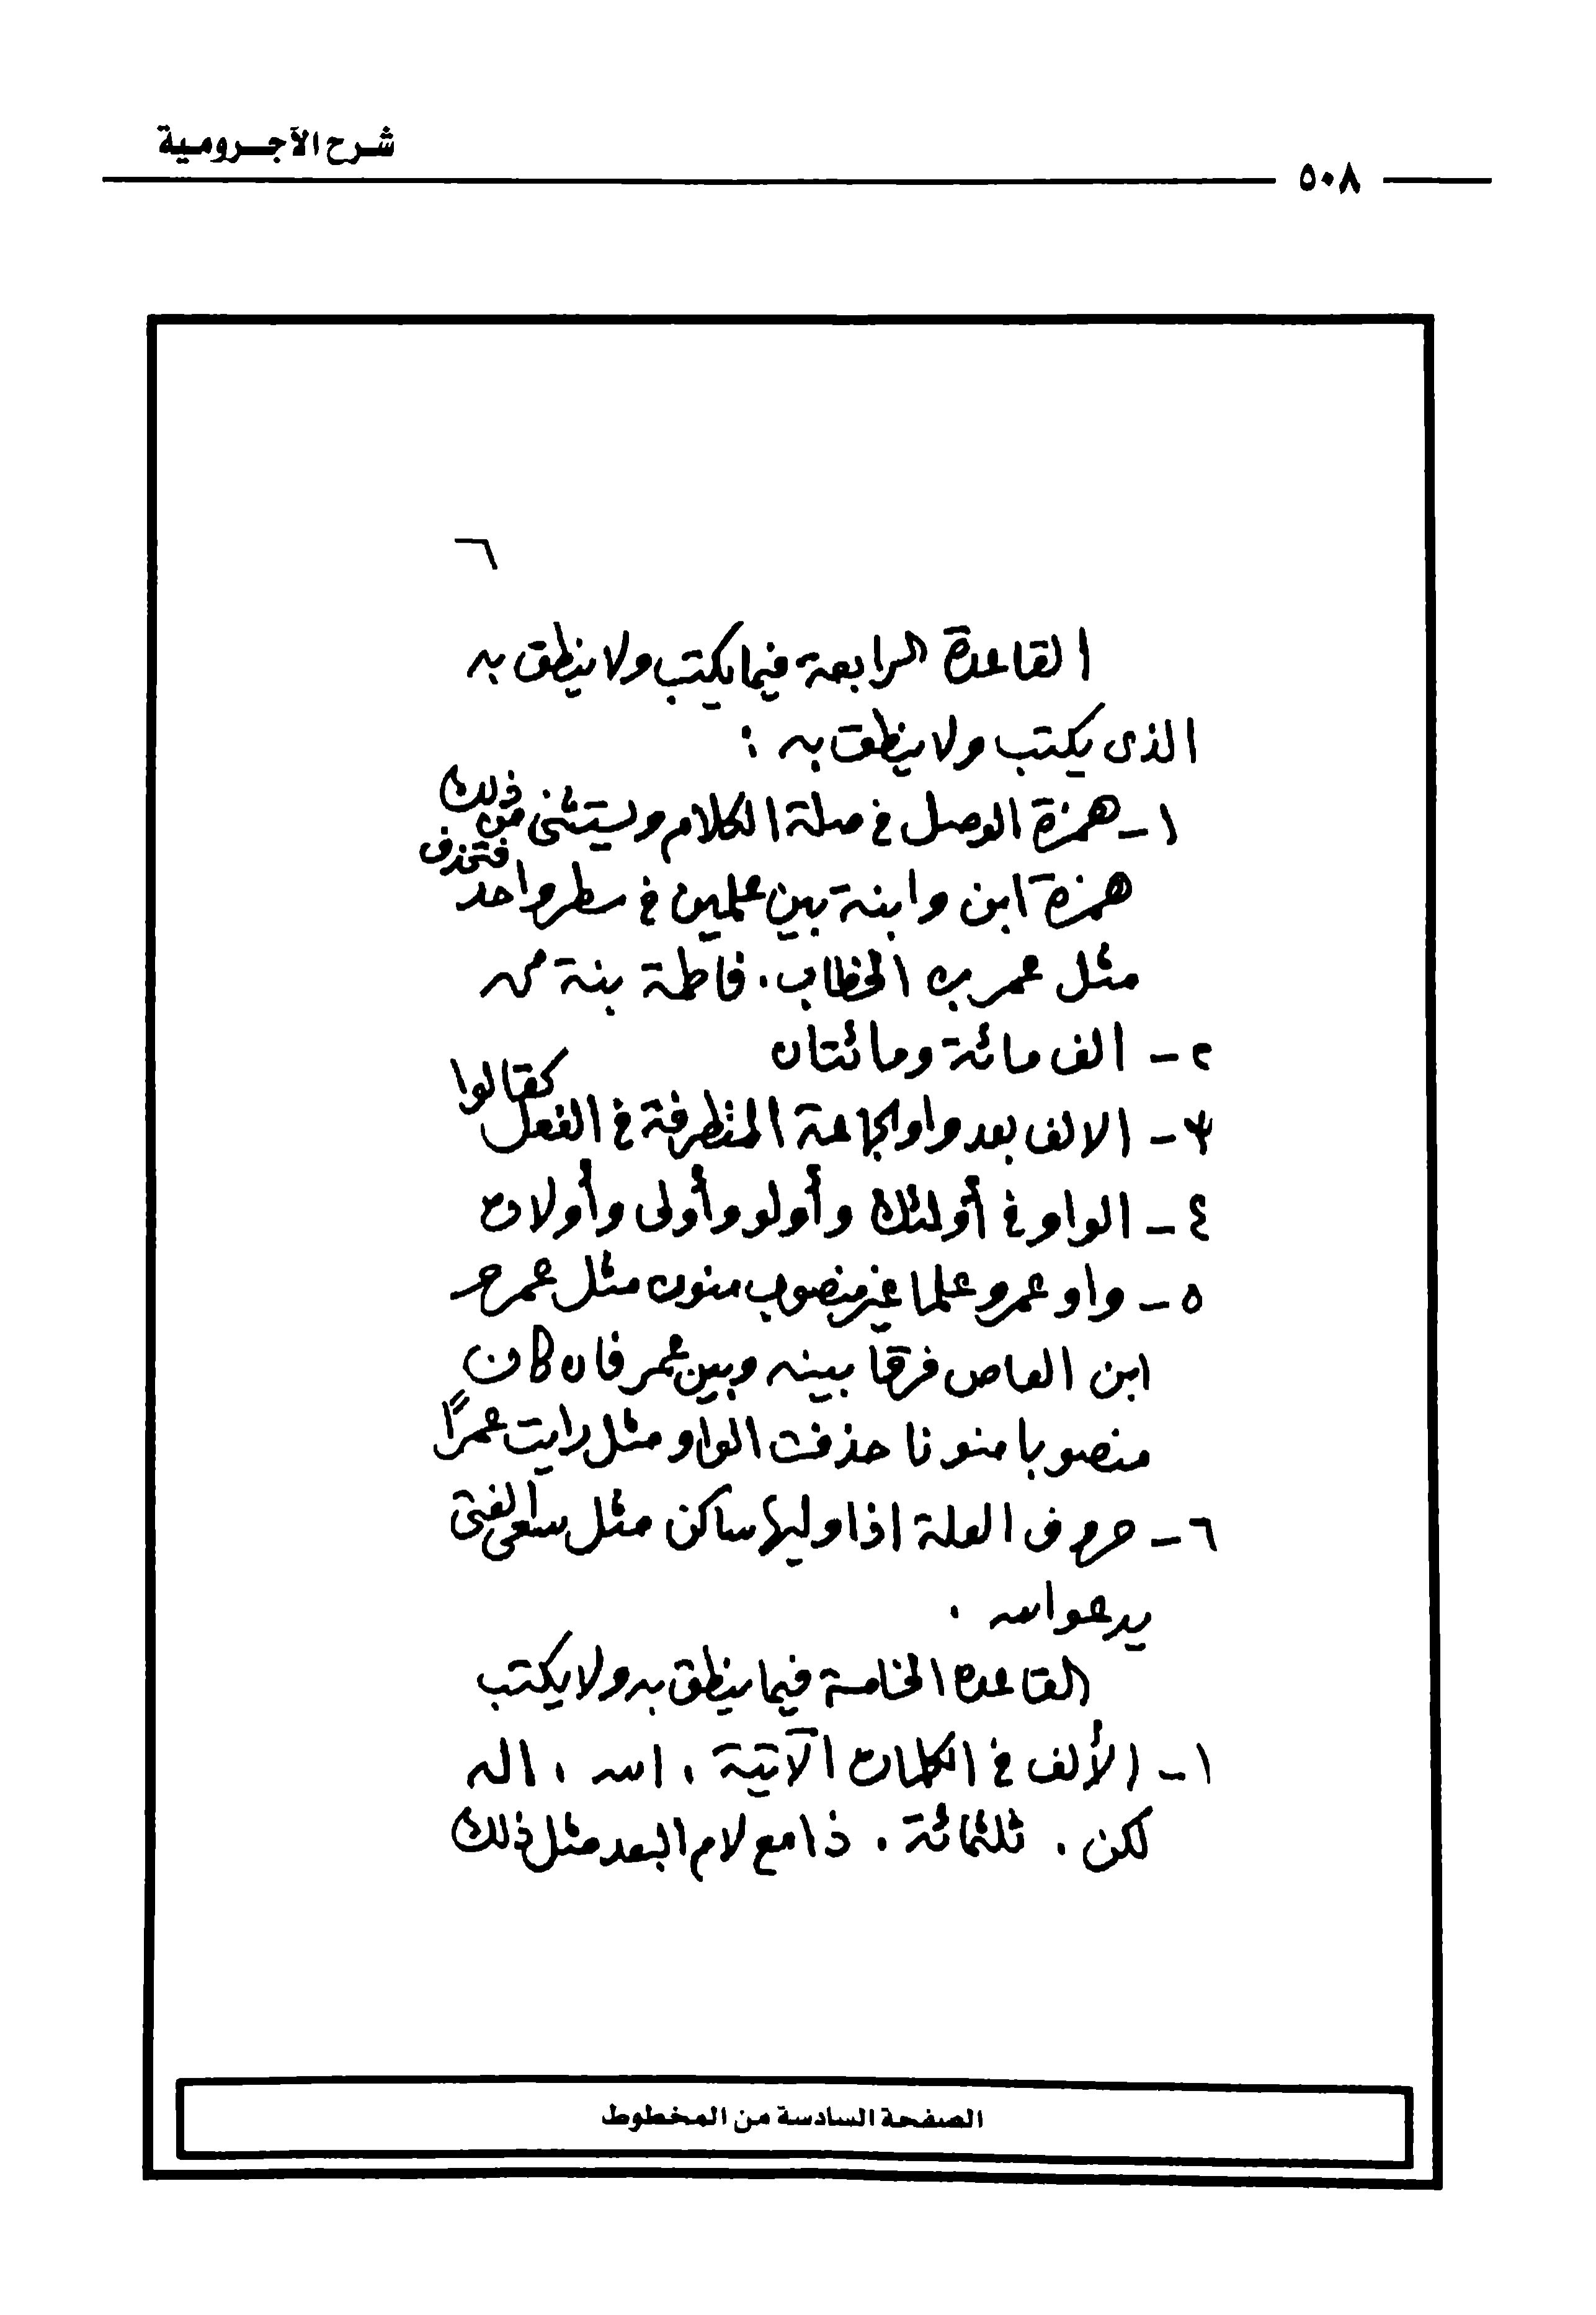 شرح الآجرومية
٥٠٨
٦
القاعدة الرابعة فيما يكتب ولا ينطق به
الذى يكتب ولا ينطق به :
١- همزة الوصل في صلة الكلام ويستثنى من ذلك
همزة ابن وابنة بين علمين في سطر واحد فتحذف
مثل عمر بن الخطاب، فاطمة بنة محمد
٢- الف مائة ومائتان
٣- الالف بعد واو الجماعة المتطرفة في الفعل كقالوا
٤- الواو في أولئك وأولو وأولى وأولات
٥- واو عمرو علما غير منصوب منون مثل عمرو
ابن العاص فرقا بينه وبين عمر فان كان
منصوبا منونا حذفت الواو مثل رايت عمرًا
٦- حروف العلة اذا وليها ساكن مثل سعى الفتى
يدعو الله .
القاعدة الخامسة فيما ينطق به ولا يكتب
١- الألف في الكلمات الآتية ، الله ، اله
لكن . ثلثمائة . ذا مع لام البعد مثل ذلك
الصفحة السادسة من المخطوط